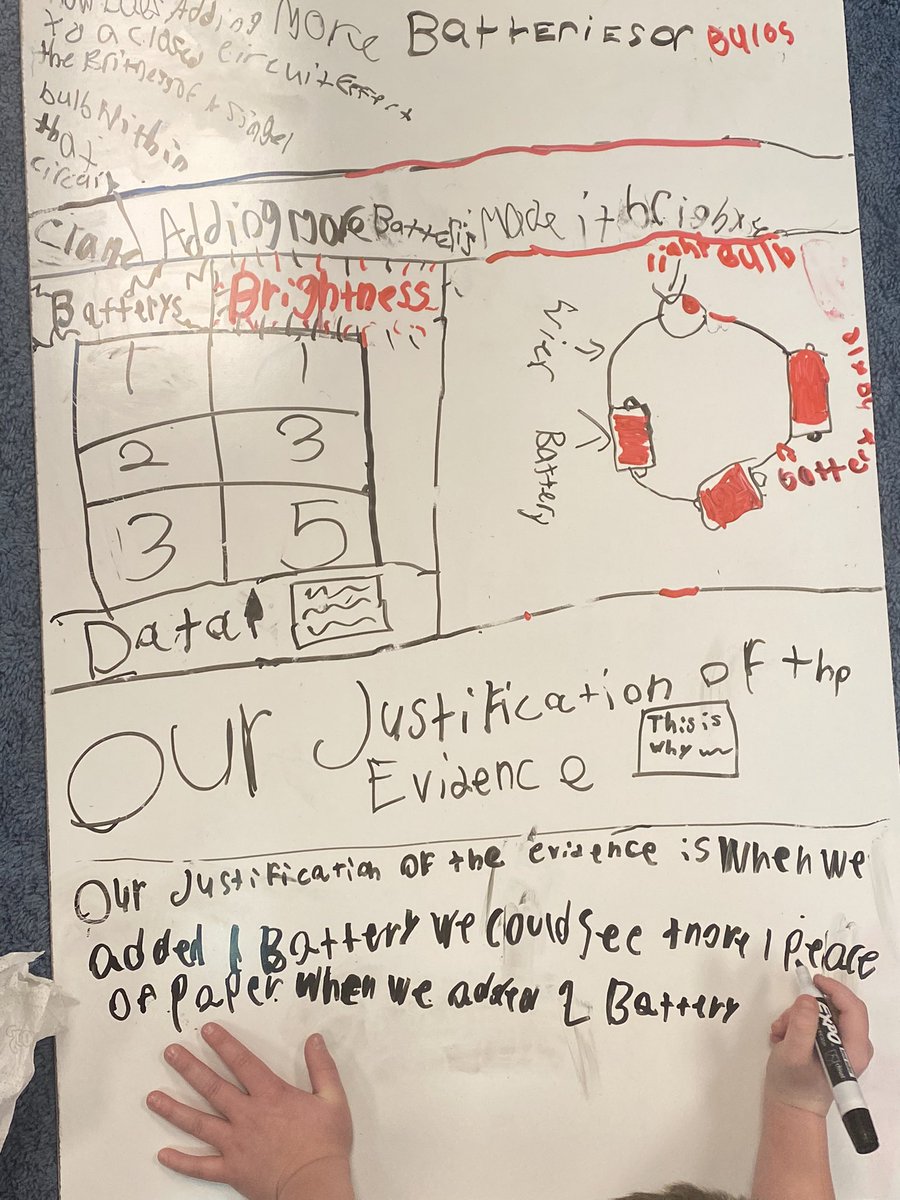 How Does Adding More Batteries or Bulbs
to a closed circuit Effect
the Britness of A Singel
bulb Within
that
circuit
Adding more Batteris Made it
Batterys Brightness
1 1
2 3
3 5
Data
light Bulb
Wier
Battery
Our Justification of the
Evidence
This is
why
Our Justification of the evidence is When we
added 1 Battery we could see thore 1 Pieace
of paper When we added 2 Battery
EXPO